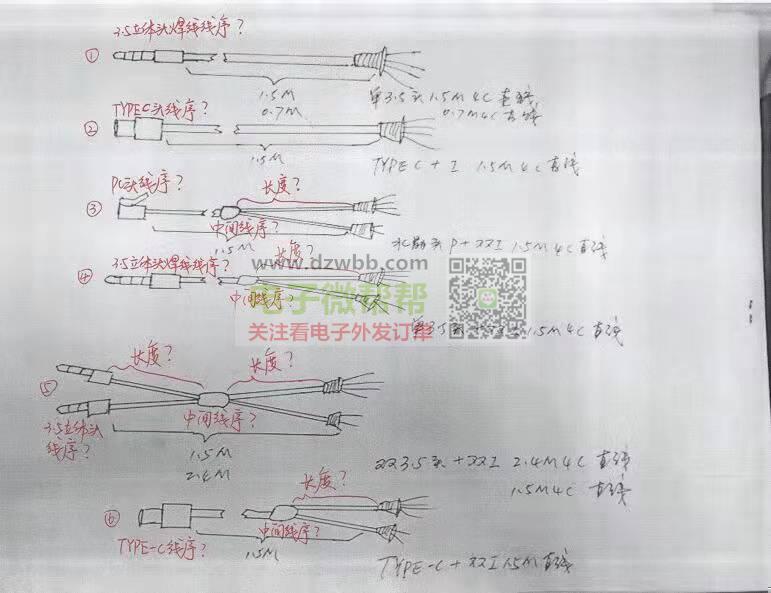 3.5立体头焊线线序?
①
1.5M
0.7M
单3.5头 1.5M 4C 直线
0.7M 4C 直线
TYPEC头线序?
②
1.5M
TYPE C + I 1.5M 4C 直线
PC头线序?
长度?
③
中间线序?
1.5M
P+双I 1.5M 4C 直线
长度?
www.dzwbb.com
3.5立体头焊线线序?
④
中间线序?
电子微帮帮
关注看电子外发订单
单3.5头 1.5M 4C 直线
长度?
长度?
⑤
中间线序?
3.5立体头
线序?
1.5M
2.4M
双3.5头+双I 2.4M 4C 直线
1.5M 4C 直线
长度?
⑥
中间线序?
TYPE-C线序?
1.5M
TYPE-C + 双I 1.5M 直线